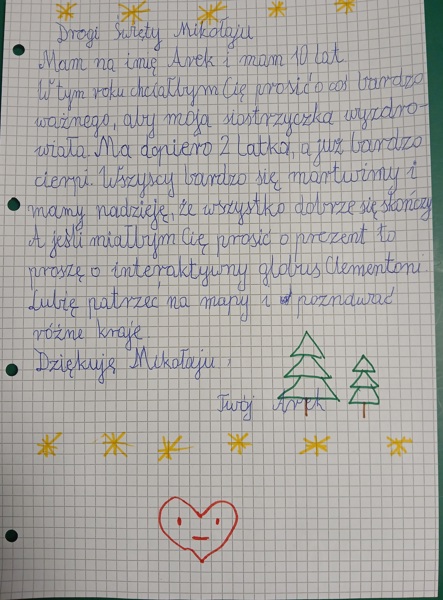 Drogi Święty Mikołaju
Mam na imię Arek i mam 10 lat.
W tym roku chciałbym Cię prosić o coś bardzo
ważnego, aby moja siostrzyczka wyzdro-
wiała. Ma dopiero 2 latka, a już bardzo
cierpi. Wszyscy bardzo się martwimy i
mamy nadzieję, że wszystko dobrze się skończy
A jeśli miałbym Cię prosić o prezent to
proszę o interaktywny globus Clementoni
Lubię patrzeć na mapy i poznawać
różne kraje
Dziękuję Mikołaju,
Twój Arek